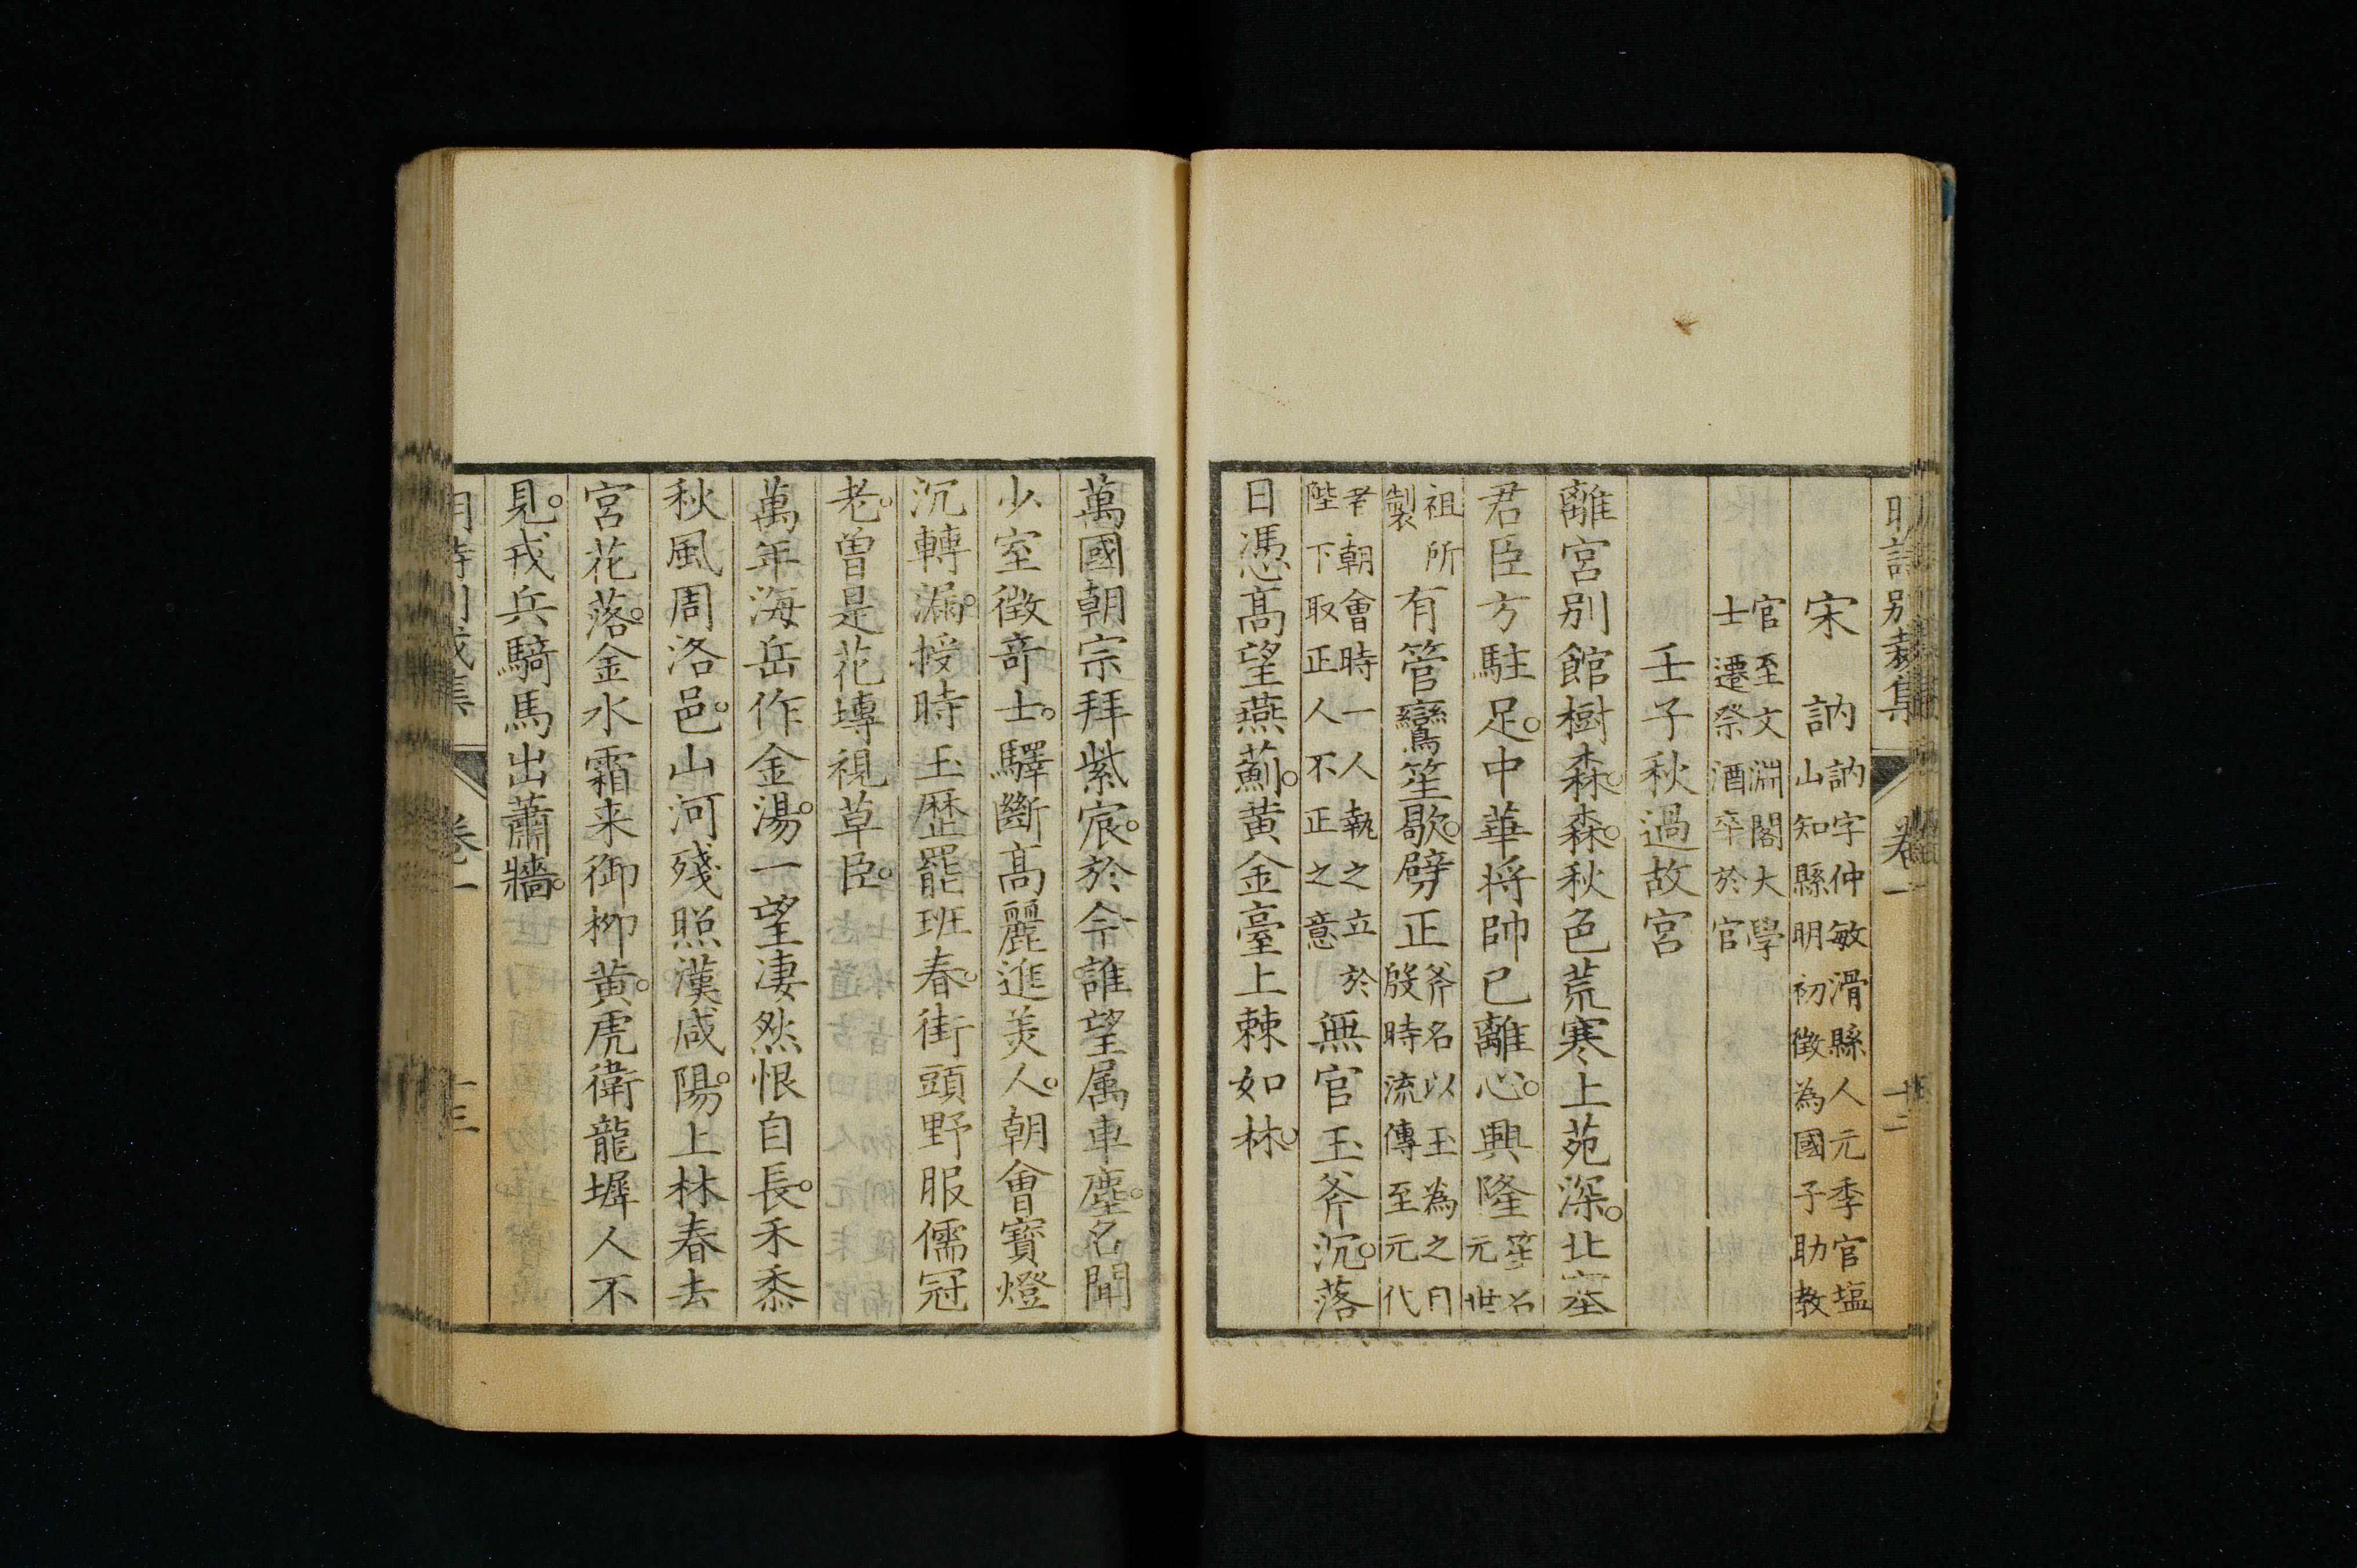 明詩別裁集 卷一 十二
宋訥
訥字仲敏滑縣人元季官塩
山知縣明初徵為國子助教
官至文淵閣大學
士遷祭酒卒於官
壬子秋過故宮
離宮別館樹森森。秋色荒寒上苑深。北塞
君臣方駐足。中華将帥已離心。興隆
笙名
元世
祖所
製
有管鸞笙歇。劈正
斧名以玉為之
殷時流傳至元代
者朝會時一人執之立於
陛下取正人不正之意
無官玉斧沉。落
日憑髙望燕薊。黄金臺上棘如林。
萬國朝宗拜紫宸。於今誰望属車塵。名聞
少室徵竒士。驛斷髙麗進美人。朝會寶燈
沉轉漏。授時玉歴罷班春。街頭野服儒冠
老。曾是花塼視草臣。
萬年海岳作金湯。一望凄然恨自長。禾黍
秋風周洛邑。山河殘照漢咸陽。上林春去
宮花落。金水霜来御柳黄。虎衛龍墀人不
見。戎兵騎馬出蕭牆。
卷一 十三